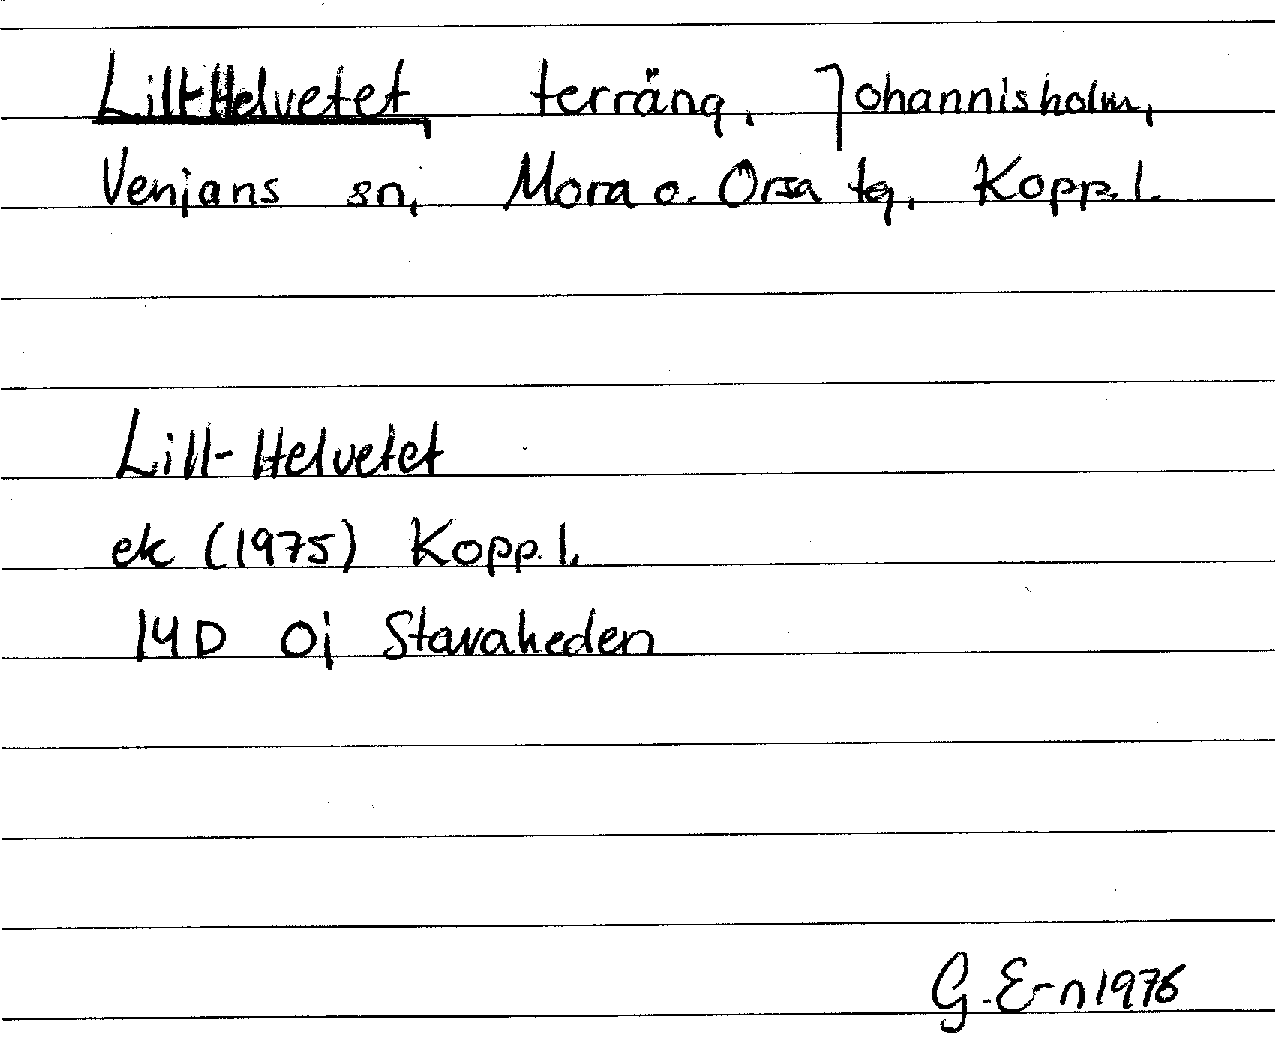 LillHelvetet, terräng, Johannisholm,
Venjans sn, Mora o. Orsa tg, Kopp. l.
Lill-Helvetet
ek (1975) Kopp. l.
14D 0j Stavaheden
G. E-n 1976